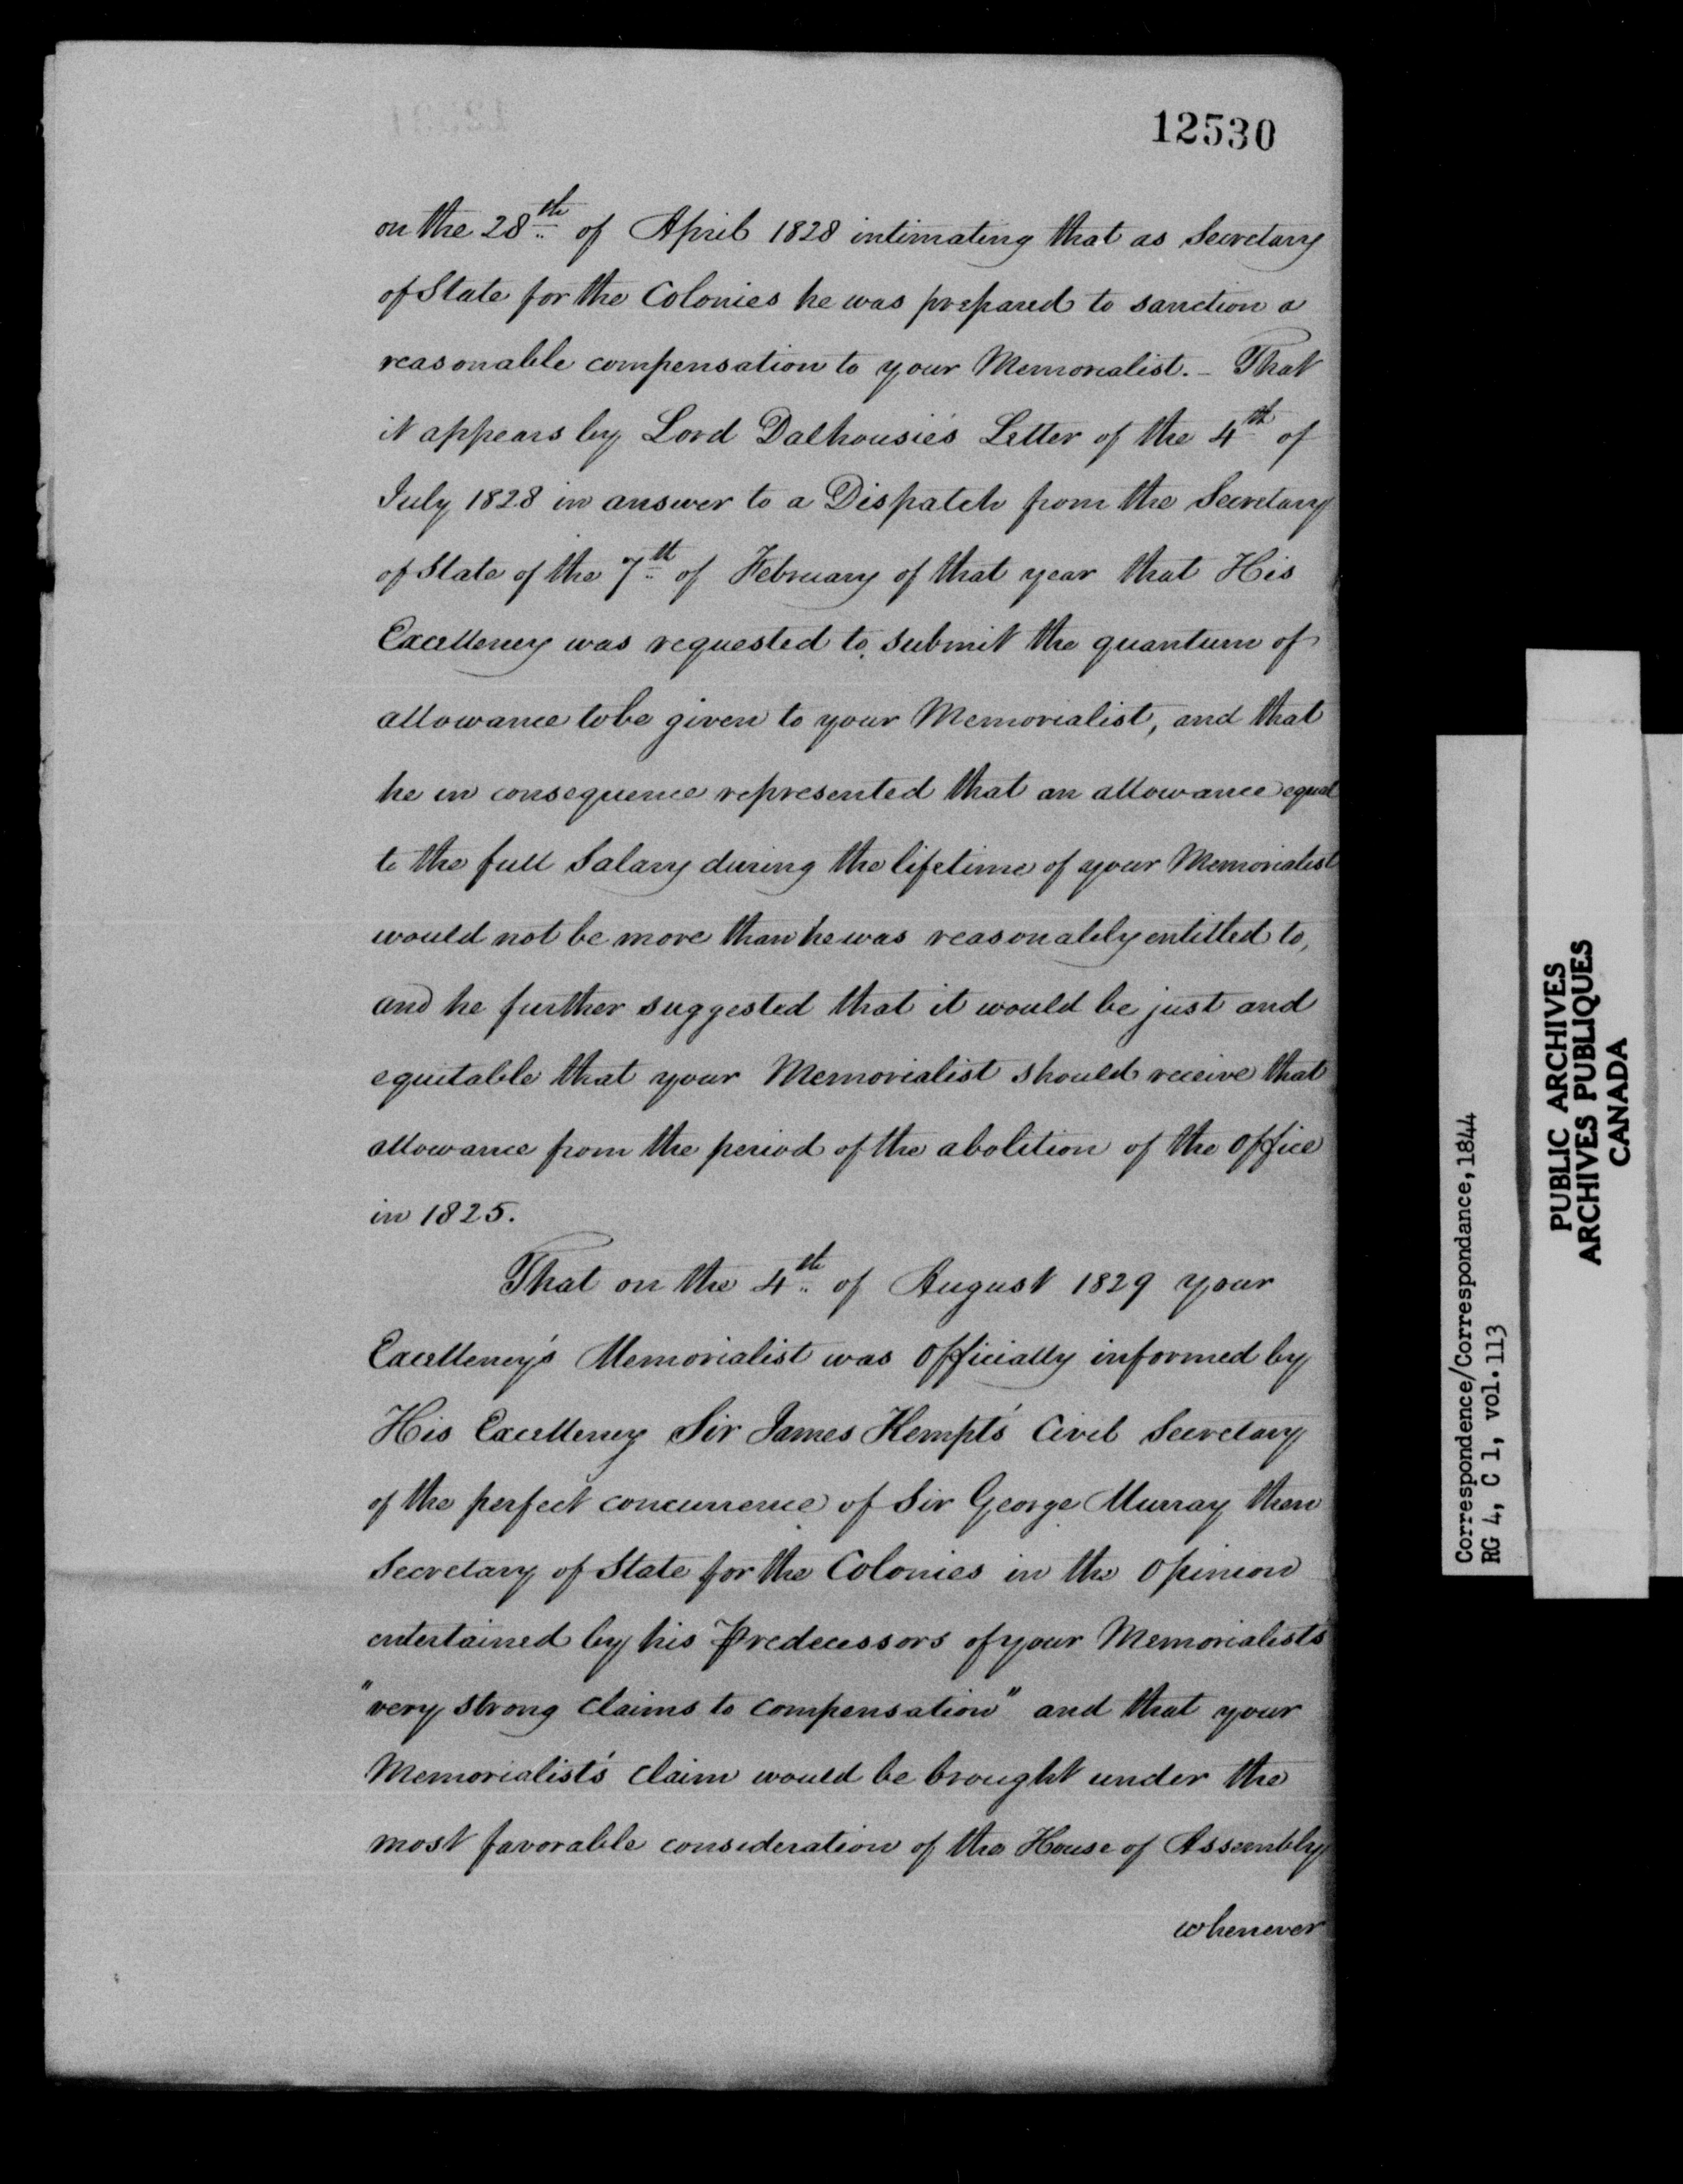 12530
on the 28th of April 1828 intimating that as Secretary
of State for the Colonies he was prepared to sanction a
reasonable compensation to your Memorialist. - That
it appears by Lord Dalhousie's Letter of the 4th of
July 1828 in answer to a Dispatch from the Secretary
of State of the 7th of February of that year that His
Excellency was requested to submit the quantum of
allowance to be given to your Memorialist, and that
he in consequence represented that an allowance equal
to the full Salary during the lifetime of your Memorialist
would not be more than he was reasonably entitled to,
and he further suggested that it would be just and
equitable that your Memorialist should receive that
allowance from the period of the abolition of the Office
in 1825.
That on the 4th of August 1829 your
Excellency's Memorialist was Officially informed by
His Excellency Sir James Kempt's Civil Secretary
of the perfect concurrence of Sir George Murray then
Secretary of State for the Colonies in the Opinion
entertained by his Predecessors of your Memorialist's
"very strong claims to compensation" and that your
Memorialist's claim would be brought under the
most favorable consideration of the House of Assembly
whenever
Correspondence/Correspondance, 1844
RG 4, C 1, vol. 113
PUBLIC ARCHIVES
ARCHIVES PUBLIQUES
CANADA